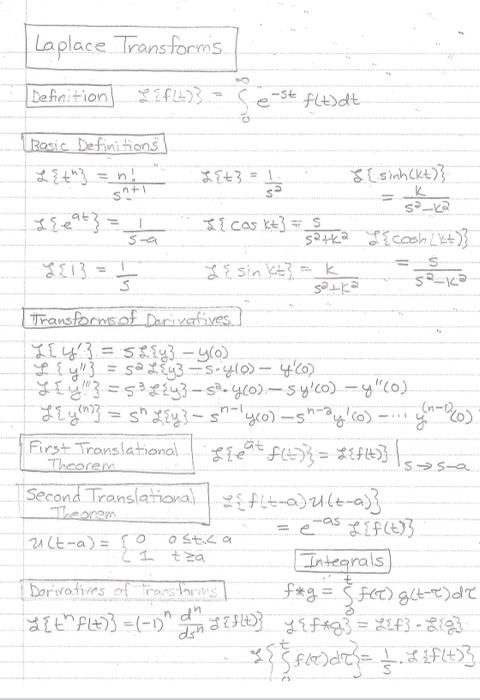 Laplace Transforms
Definition ℒ{f(t)} = ∫₀^∞ e^{-st} f(t)dt
Basic Definitions
ℒ{tⁿ} = n!/s^{n+1} ℒ{t} = 1/s² ℒ{sinh(kt)} = k/(s²-k²)
ℒ{e^{at}} = 1/(s-a) ℒ{cos kt} = s/(s²+k²) ℒ{cosh(kt)} = s/(s²-k²)
ℒ{1} = 1/s ℒ{sin kt} = k/(s²+k²)
Transforms of Derivatives
ℒ{y'} = sℒ{y} - y(0)
ℒ{y''} = s²ℒ{y} - s·y(0) - y'(0)
ℒ{y'''} = s³ℒ{y} - s²·y(0) - sy'(0) - y''(0)
ℒ{y^{(n)}} = sⁿℒ{y} - s^{n-1}y(0) - s^{n-2}y'(0) - ··· y^{(n-1)}(0)
First Translational
Theorem
ℒ{e^{at} f(t)} = ℒ{f(t)}|_{s→s-a}
Second Translational
Theorem
ℒ{f(t-a)u(t-a)}
= e^{-as} ℒ{f(t)}
u(t-a) = {0 0≤t<a
{1 t≥a
Integrals
f*g = ∫₀^t f(τ) g(t-τ)dτ
Derivatives of Transforms
ℒ{tⁿ f(t)} = (-1)ⁿ dⁿ/dsⁿ ℒ{f(t)} ℒ{f*g} = ℒ{f} · ℒ{g}
ℒ{∫₀^t f(τ)dτ} = 1/s · ℒ{f(t)}